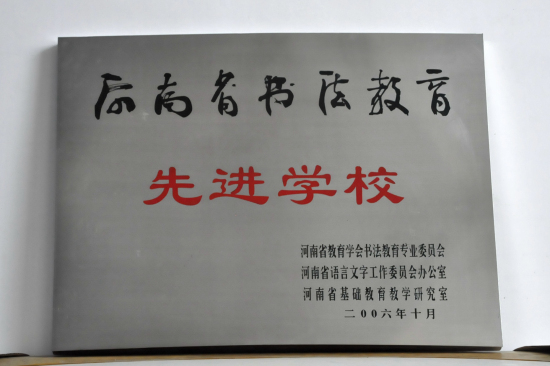 河南省书法教育
先进学校
河南省教育学会书法教育专业委员会
河南省语言文字工作委员会办公室
河南省基础教育教学研究室
二00六年十月